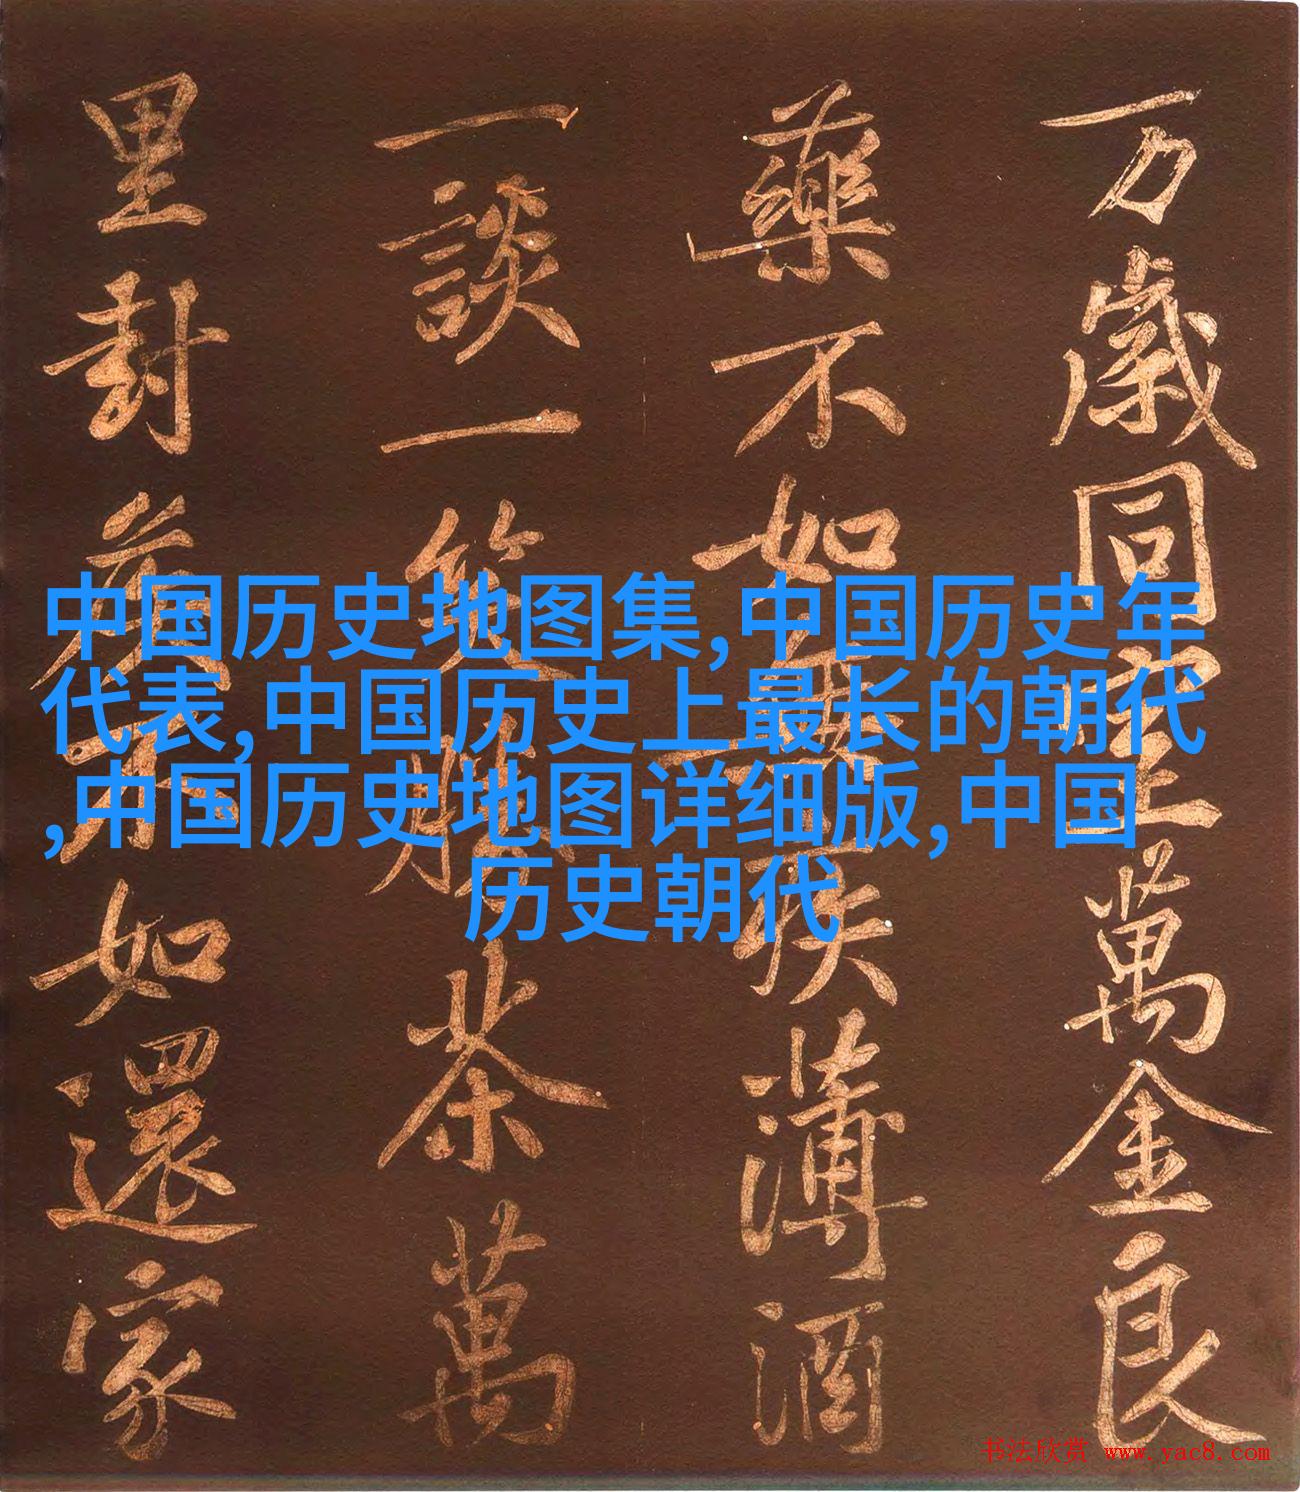 万歲同室萬金良
藥不如無疾薄酒
一談一笑勝茶萬
里封侯不如還家
中国历史地图集,中国历史年
代表,中国历史上最长的朝代
,中国历史地图详细版,中国
历史朝代
书法欣赏 www.yac8.com